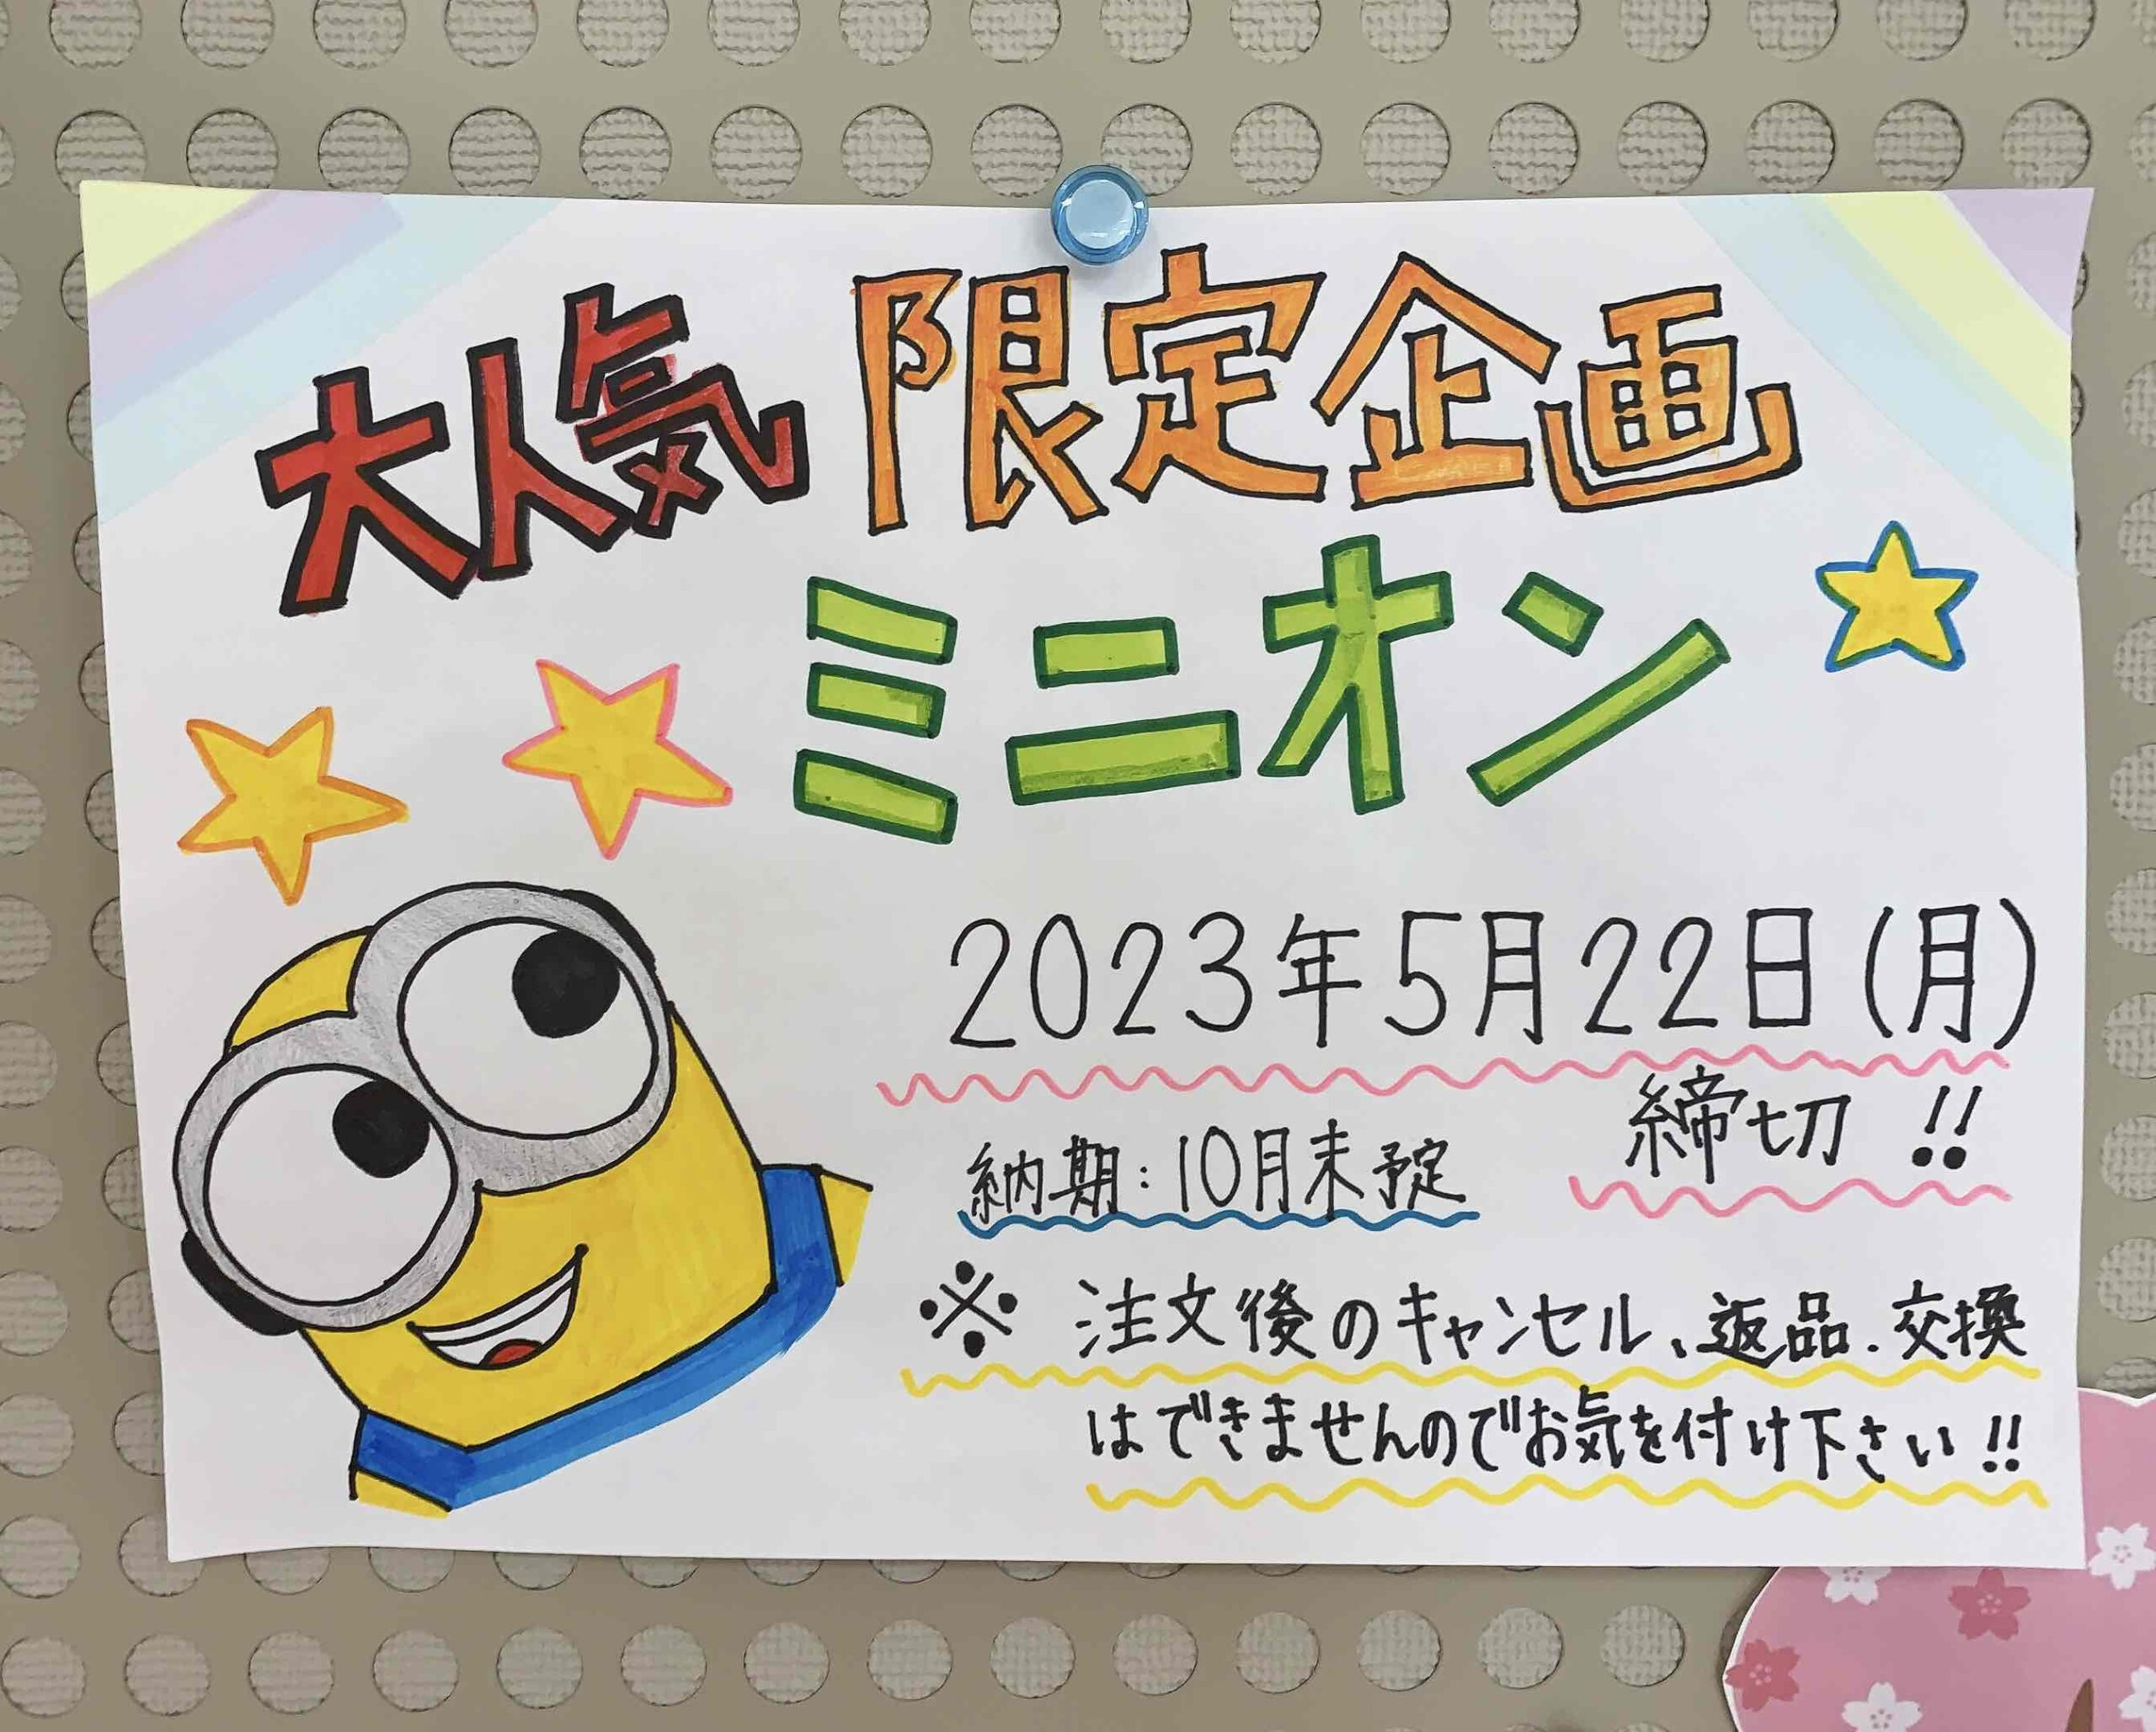 大人気 限定企画
ミニオン
2023年5月22日(月)
締切!!
納期:10月末予定
※ 注文後のキャンセル、返品、交換
はできませんのでお気を付け下さい!!